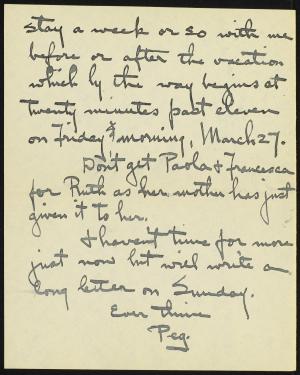 stay a week or so with me
before or after the vacation
which by the way begins at
twenty minutes past eleven
on Friday morning, March 27.
Don't get Paola & Francesca
for Ruth as her mother has just
given it to her.
I haven't time for more
just now but will write a
long letter on Sunday.
Ever thine
Peg.